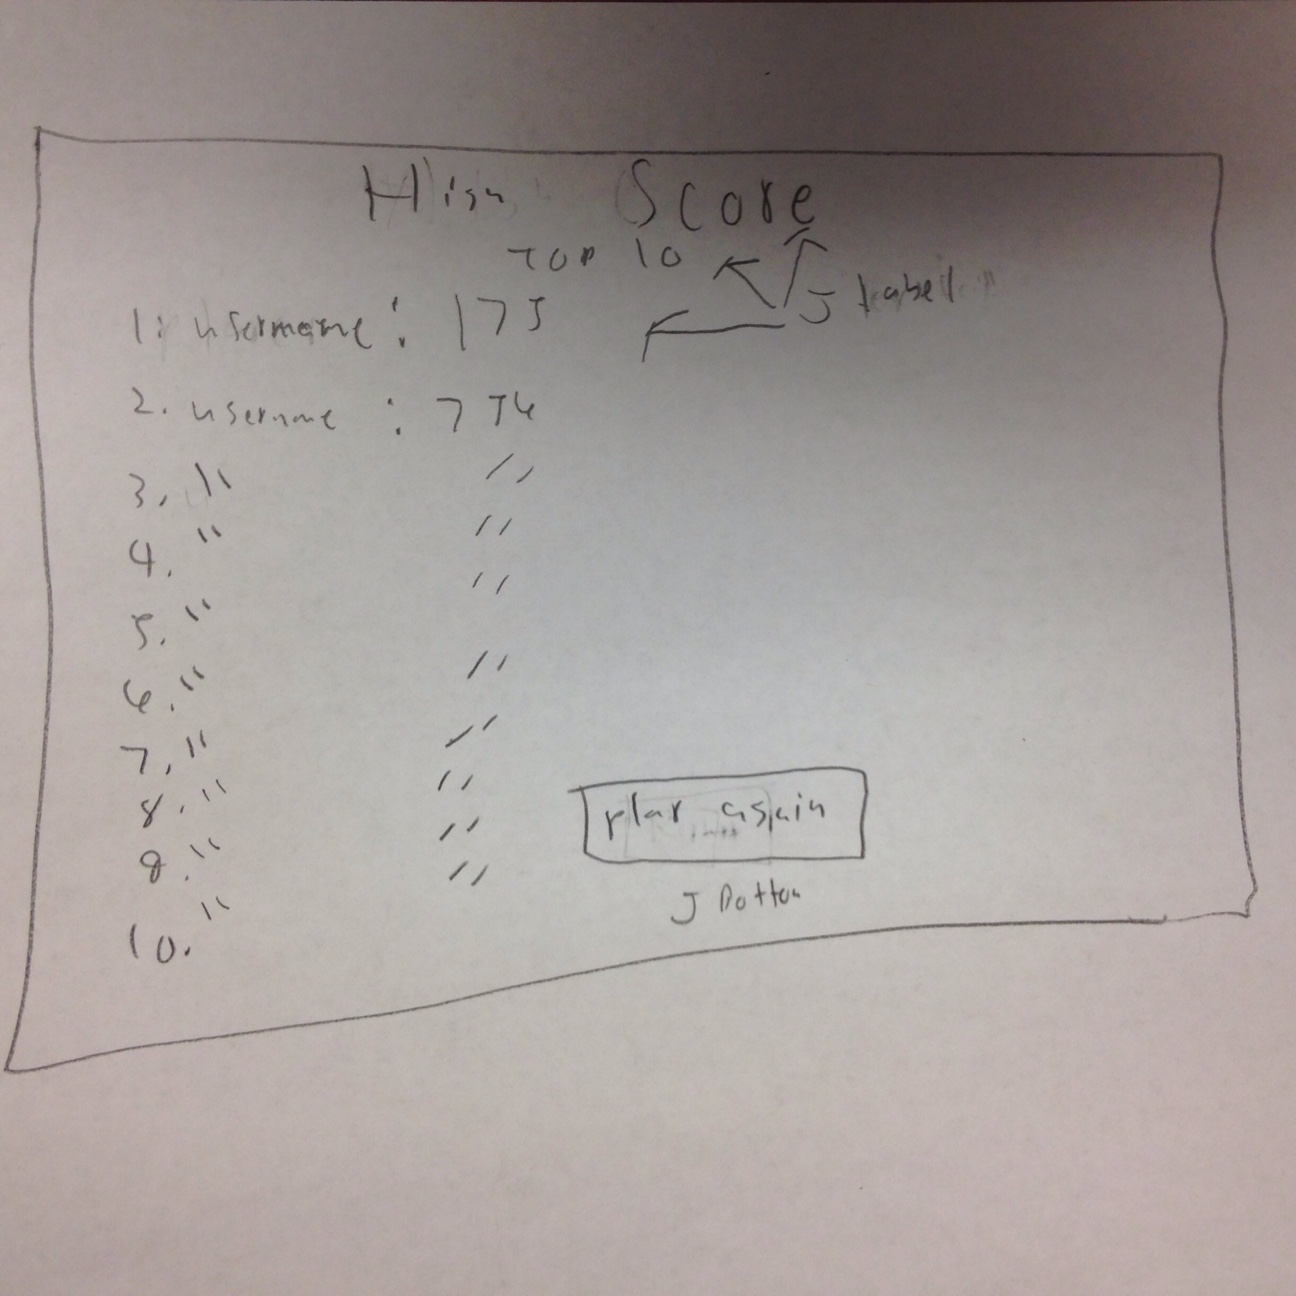 High Score
TOP 10
J label
1. username : 175
2. username : 
3. " "
4. " "
5. " "
6. " "
7. " "
8. " "
9. " "
10. " "
play again
J Button